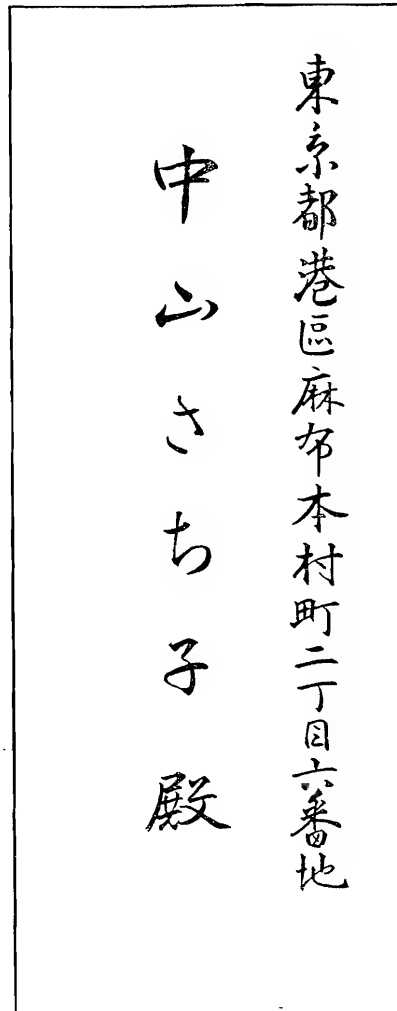 東京都港區麻布本村町二丁目六番地
中山さち子殿